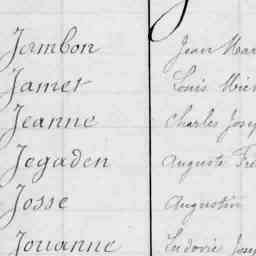 Jambon Jean Mar
Jamet Louis Mich
Jeanne Charles Jose
Jegaden Auguste Fr
Josse Augustin
Jouanne Ludovic Jose